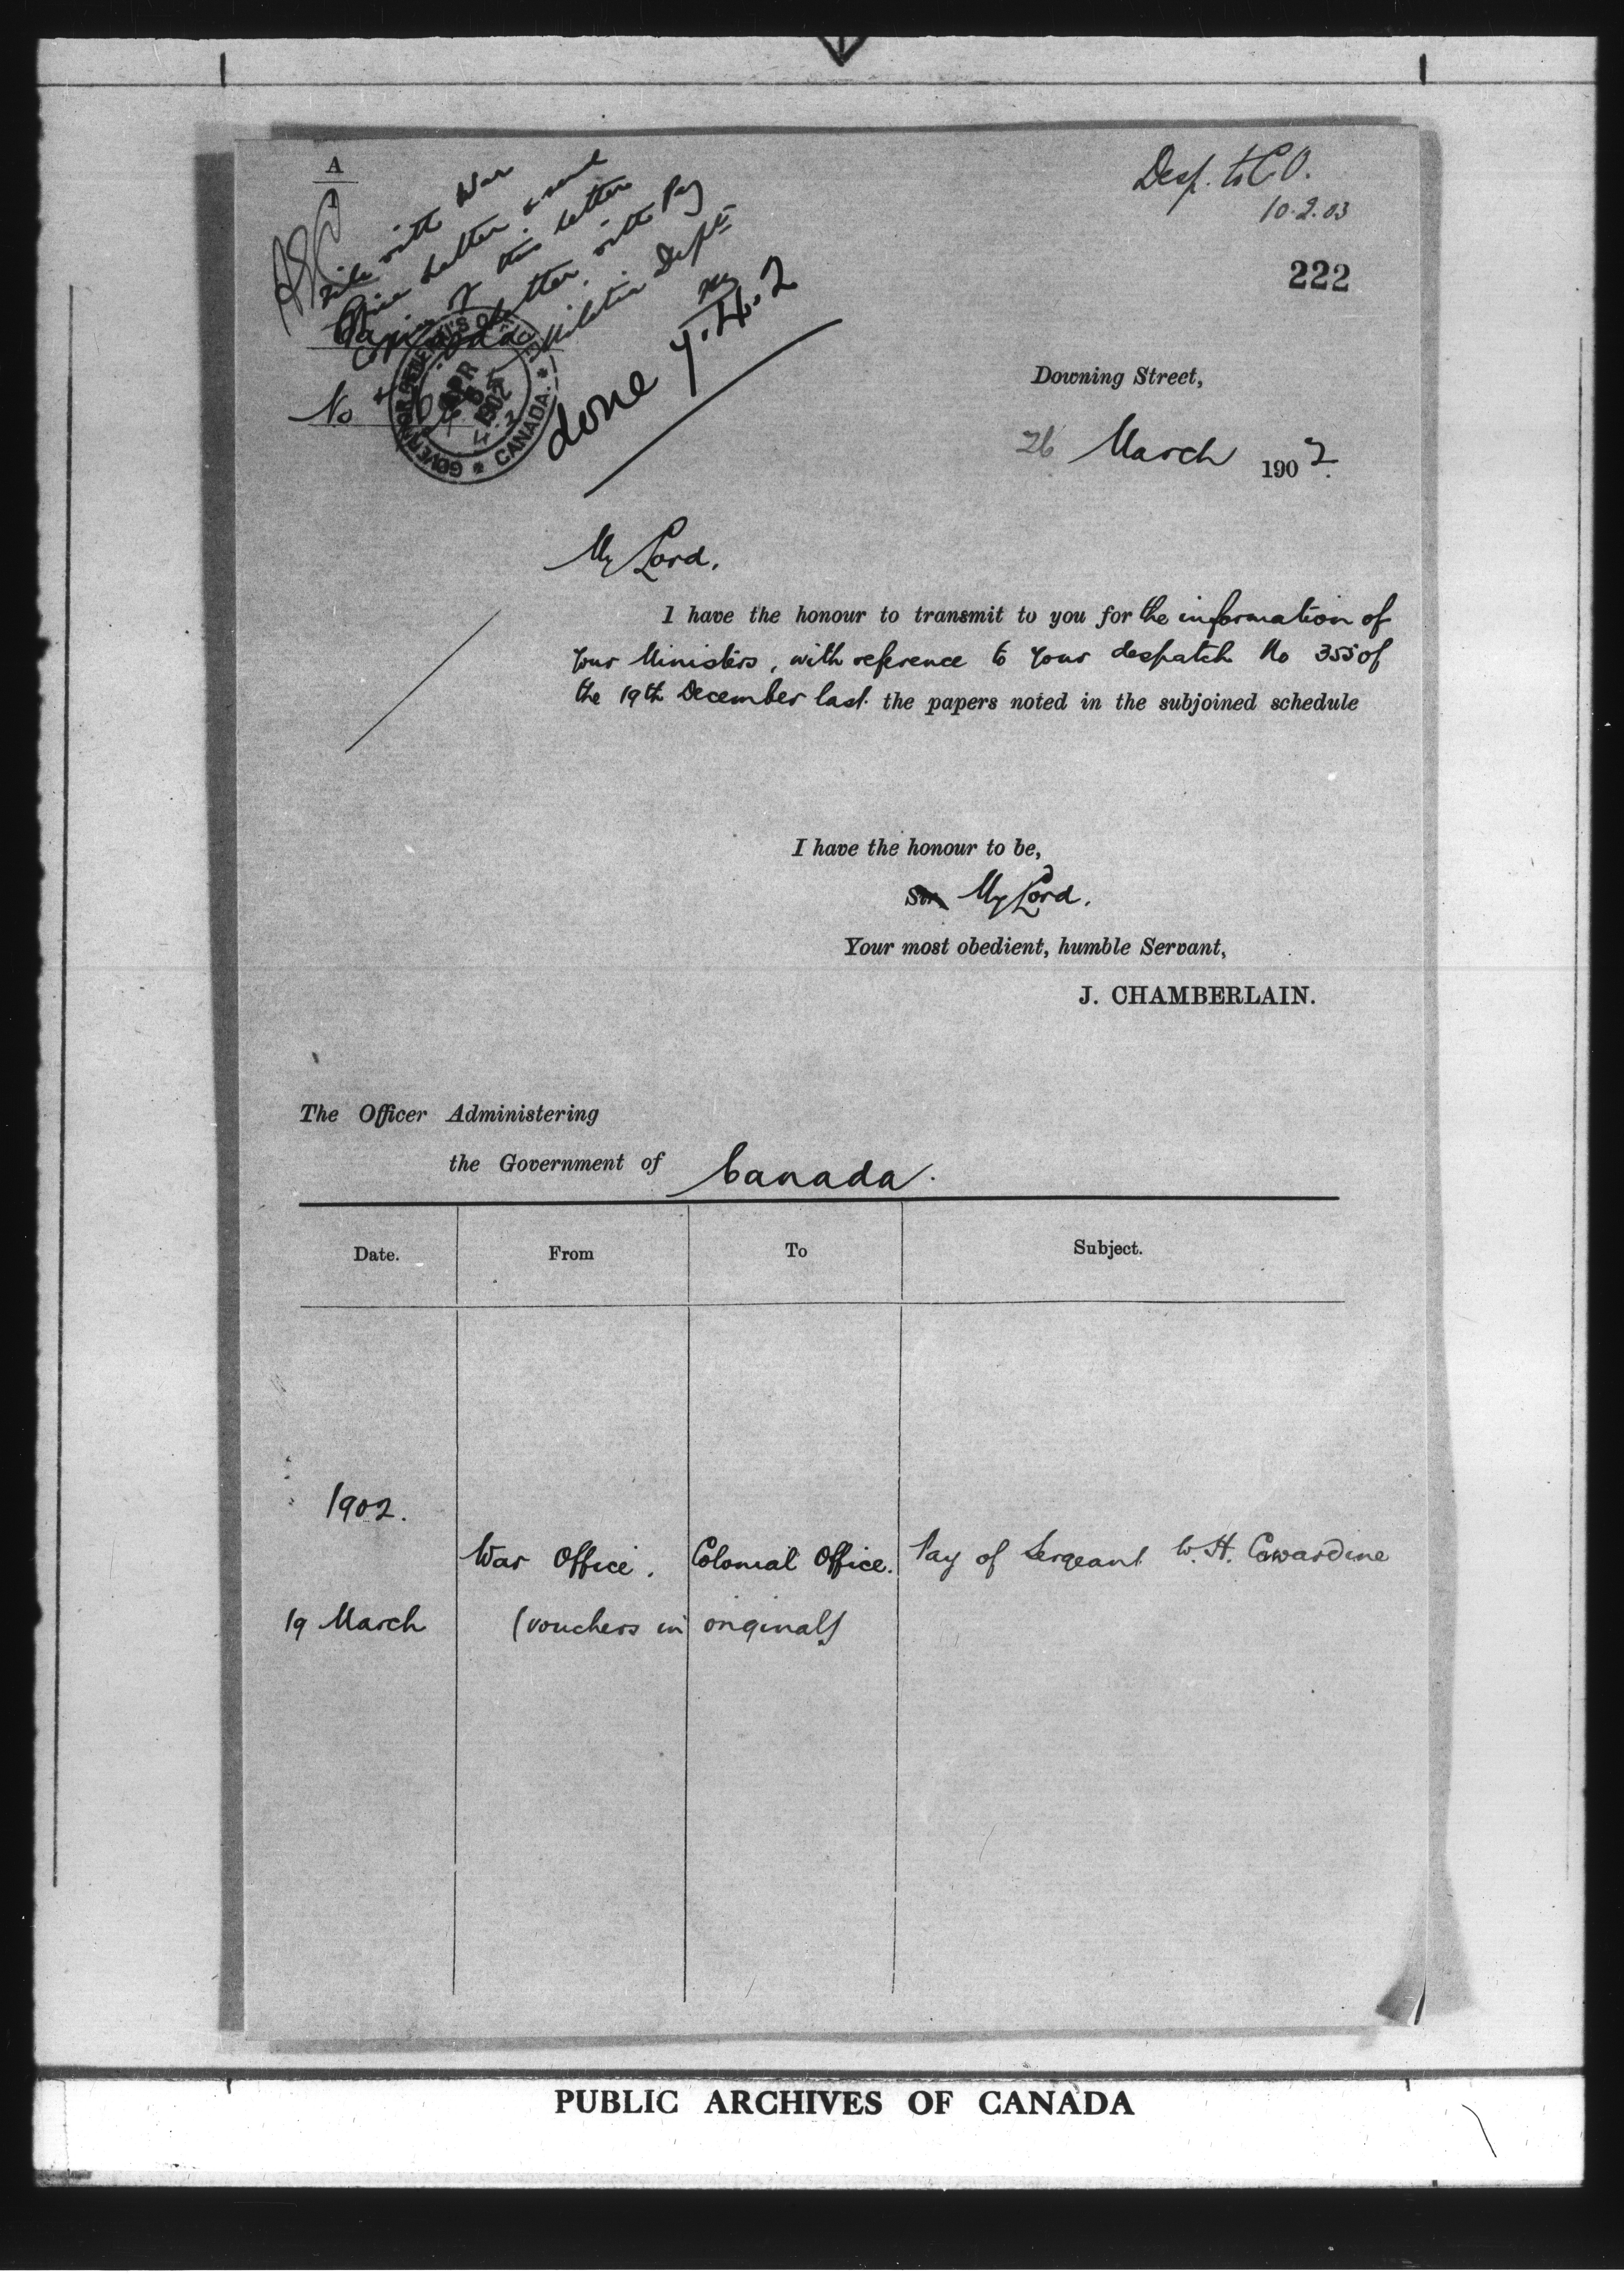 A
1
Desp. to C.O.
10.2.03
222
File with War
Office letter & send
Copies of this letter
letter with Pay
Militia Dept
done
7.4.2
Canada
No
GOVERNOR GENERAL'S OFFICE
APR
1902
CANADA.
Downing Street,
26 March 1902.
My Lord,
I have the honour to transmit to you for the information of
your Ministers, with reference to your despatch No 355 of
the 19th December last. the papers noted in the subjoined schedule
I have the honour to be,
Sir, My Lord,
Your most obedient, humble Servant,
J. CHAMBERLAIN.
The Officer Administering
the Government of Canada.
Date. From To Subject.
1902.
War Office. Colonial Office. Pay of Sergeant W. H. Cowardine
19 March (vouchers in original)
PUBLIC ARCHIVES OF CANADA